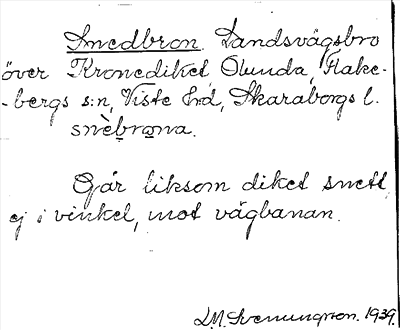 Snedbron. Landsvägsbro
över Kronediket Ölunda, Flake-
-bergs s:n, Viste hd, Skaraborgs l.
snèbrona.
Går liksom diket snett,
ej i vinkel, mot vägbanan.
D.M. Svenungsson. 1939.